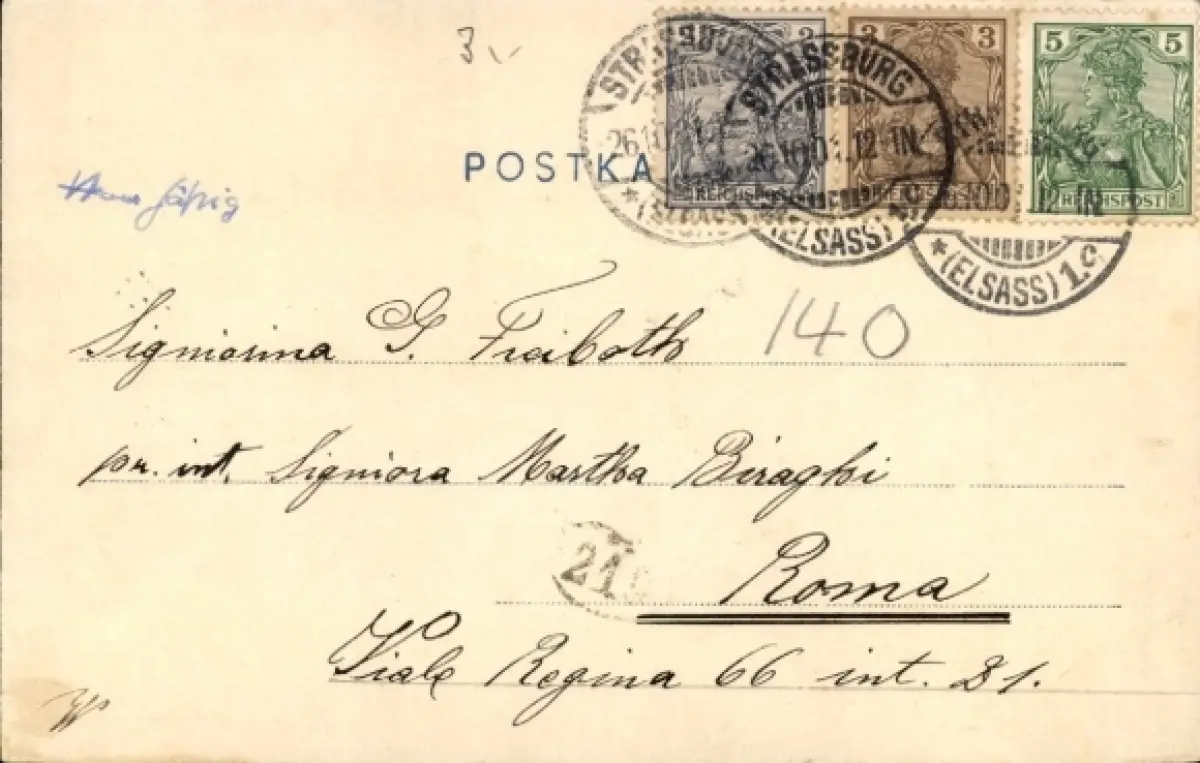 3.
2
3 3
5 5
STRASSBURG
STRASSBURG
26.10.01.12-1N.
POSTKA
REICHSPOST
REICHSPOST
REICHSPOST
(ELSASS) 1.c
* (ELSASS) 1.c
140
Signorina G. Freiboth
pr. int. Signora Martha Biraghi
21
Roma
Viale Regina 66 int. 21.